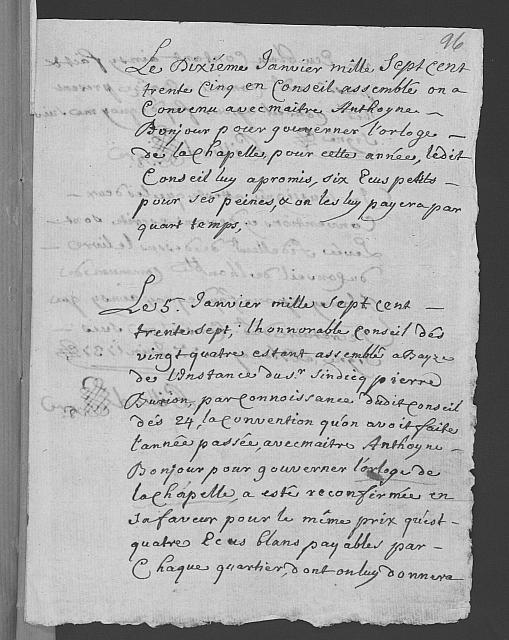 96
Le Dixiéme Janvier mille Sept Cent
trente Cinq en Conseil assemblé on a
Convenu avec maitre Anthoyne
Bonjour pour gouverner l'orloge
de la Chapelle, pour cette année, ledit
Conseil luy a promis, six Ecus petits
pour ses peines, & on les luy payera par
quart temps,
Le 5. Janvier mille Sept Cent
trente Sept, l'honnorable Conseil des
vingt quatre estant assemblé
de l'instance du Sr Sindicq pierre
par Connoissance dudit Conseil
des 24, la Convention qu'on avoit faite
l'année passée, avec maitre Anthoyne
Bonjour pour gouverner l'orloge de
la Chapelle, a esté reconfirmée en
sa faveur pour le même prix qu'est
quatre Ecus blans payables par
Chaque quartier, dont on luy donnera